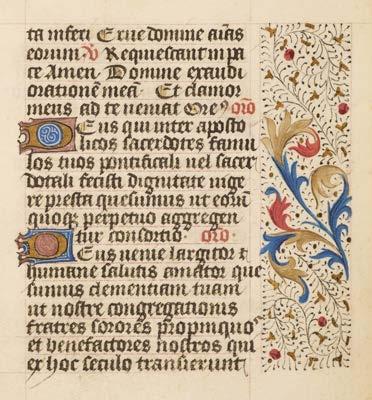 ta inferi Erue domine aīas
eorum. V Requescant in pa
ce Amen. Domine exaudi
orationē meā. Et clamor
meus ad te veniat Oreꝰ orō
Deus qui inter aposto
licos sacerdotes famu
los tuos pontificali uel sacer
dotali fecisti dignitate uige
re presta quesumus ut eorū
quoqꝫ perpetuo aggregen
tur consortio. orō.
Deus uenie largitor ⁊
humane salutis amator que
sumus clementiam tuam
ut nostre congregationis
fratres sorores propinquos
et benefactores nostros qui
ex hoc seculo transierunt